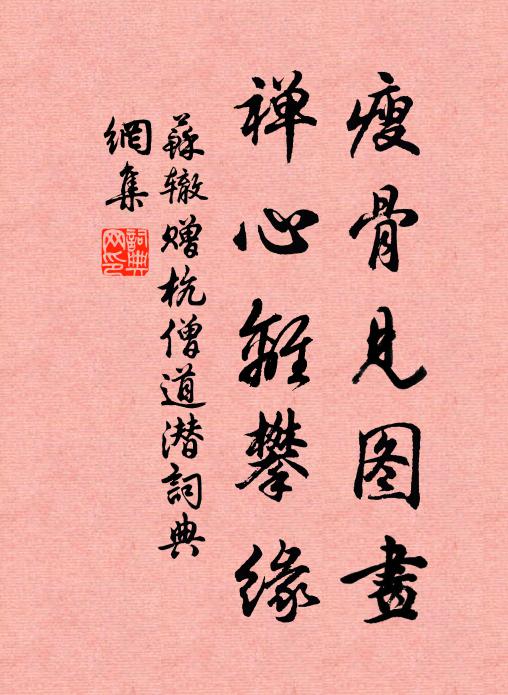 瘦骨見图畫
禅心離攀緣
蘇辙赠杭僧道潜詞典
網集
詞典
网印